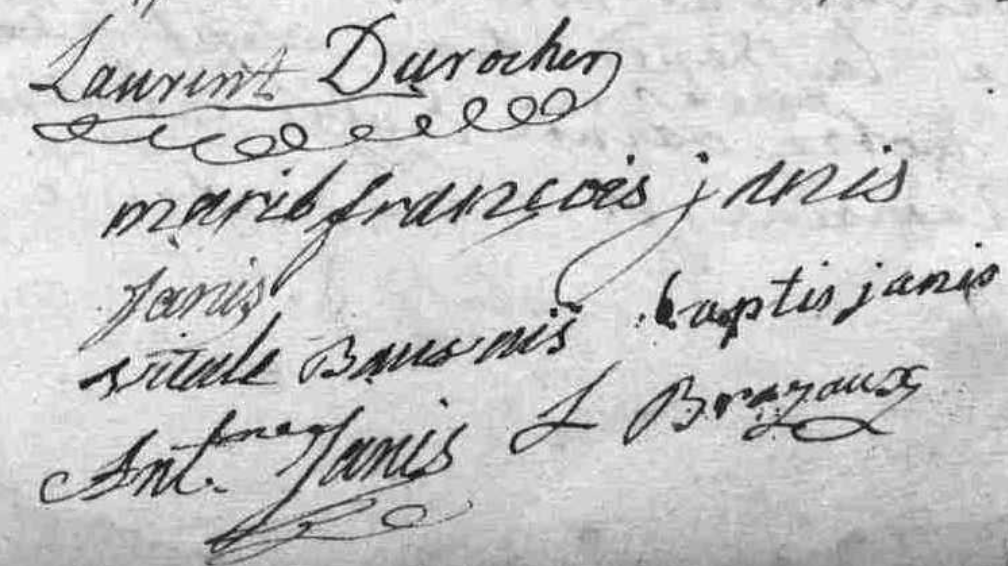 Laurent Durocher
marie françois janis
Janis
vitale Bauvais baptis janis
Ant.ne Janis L Brazaux